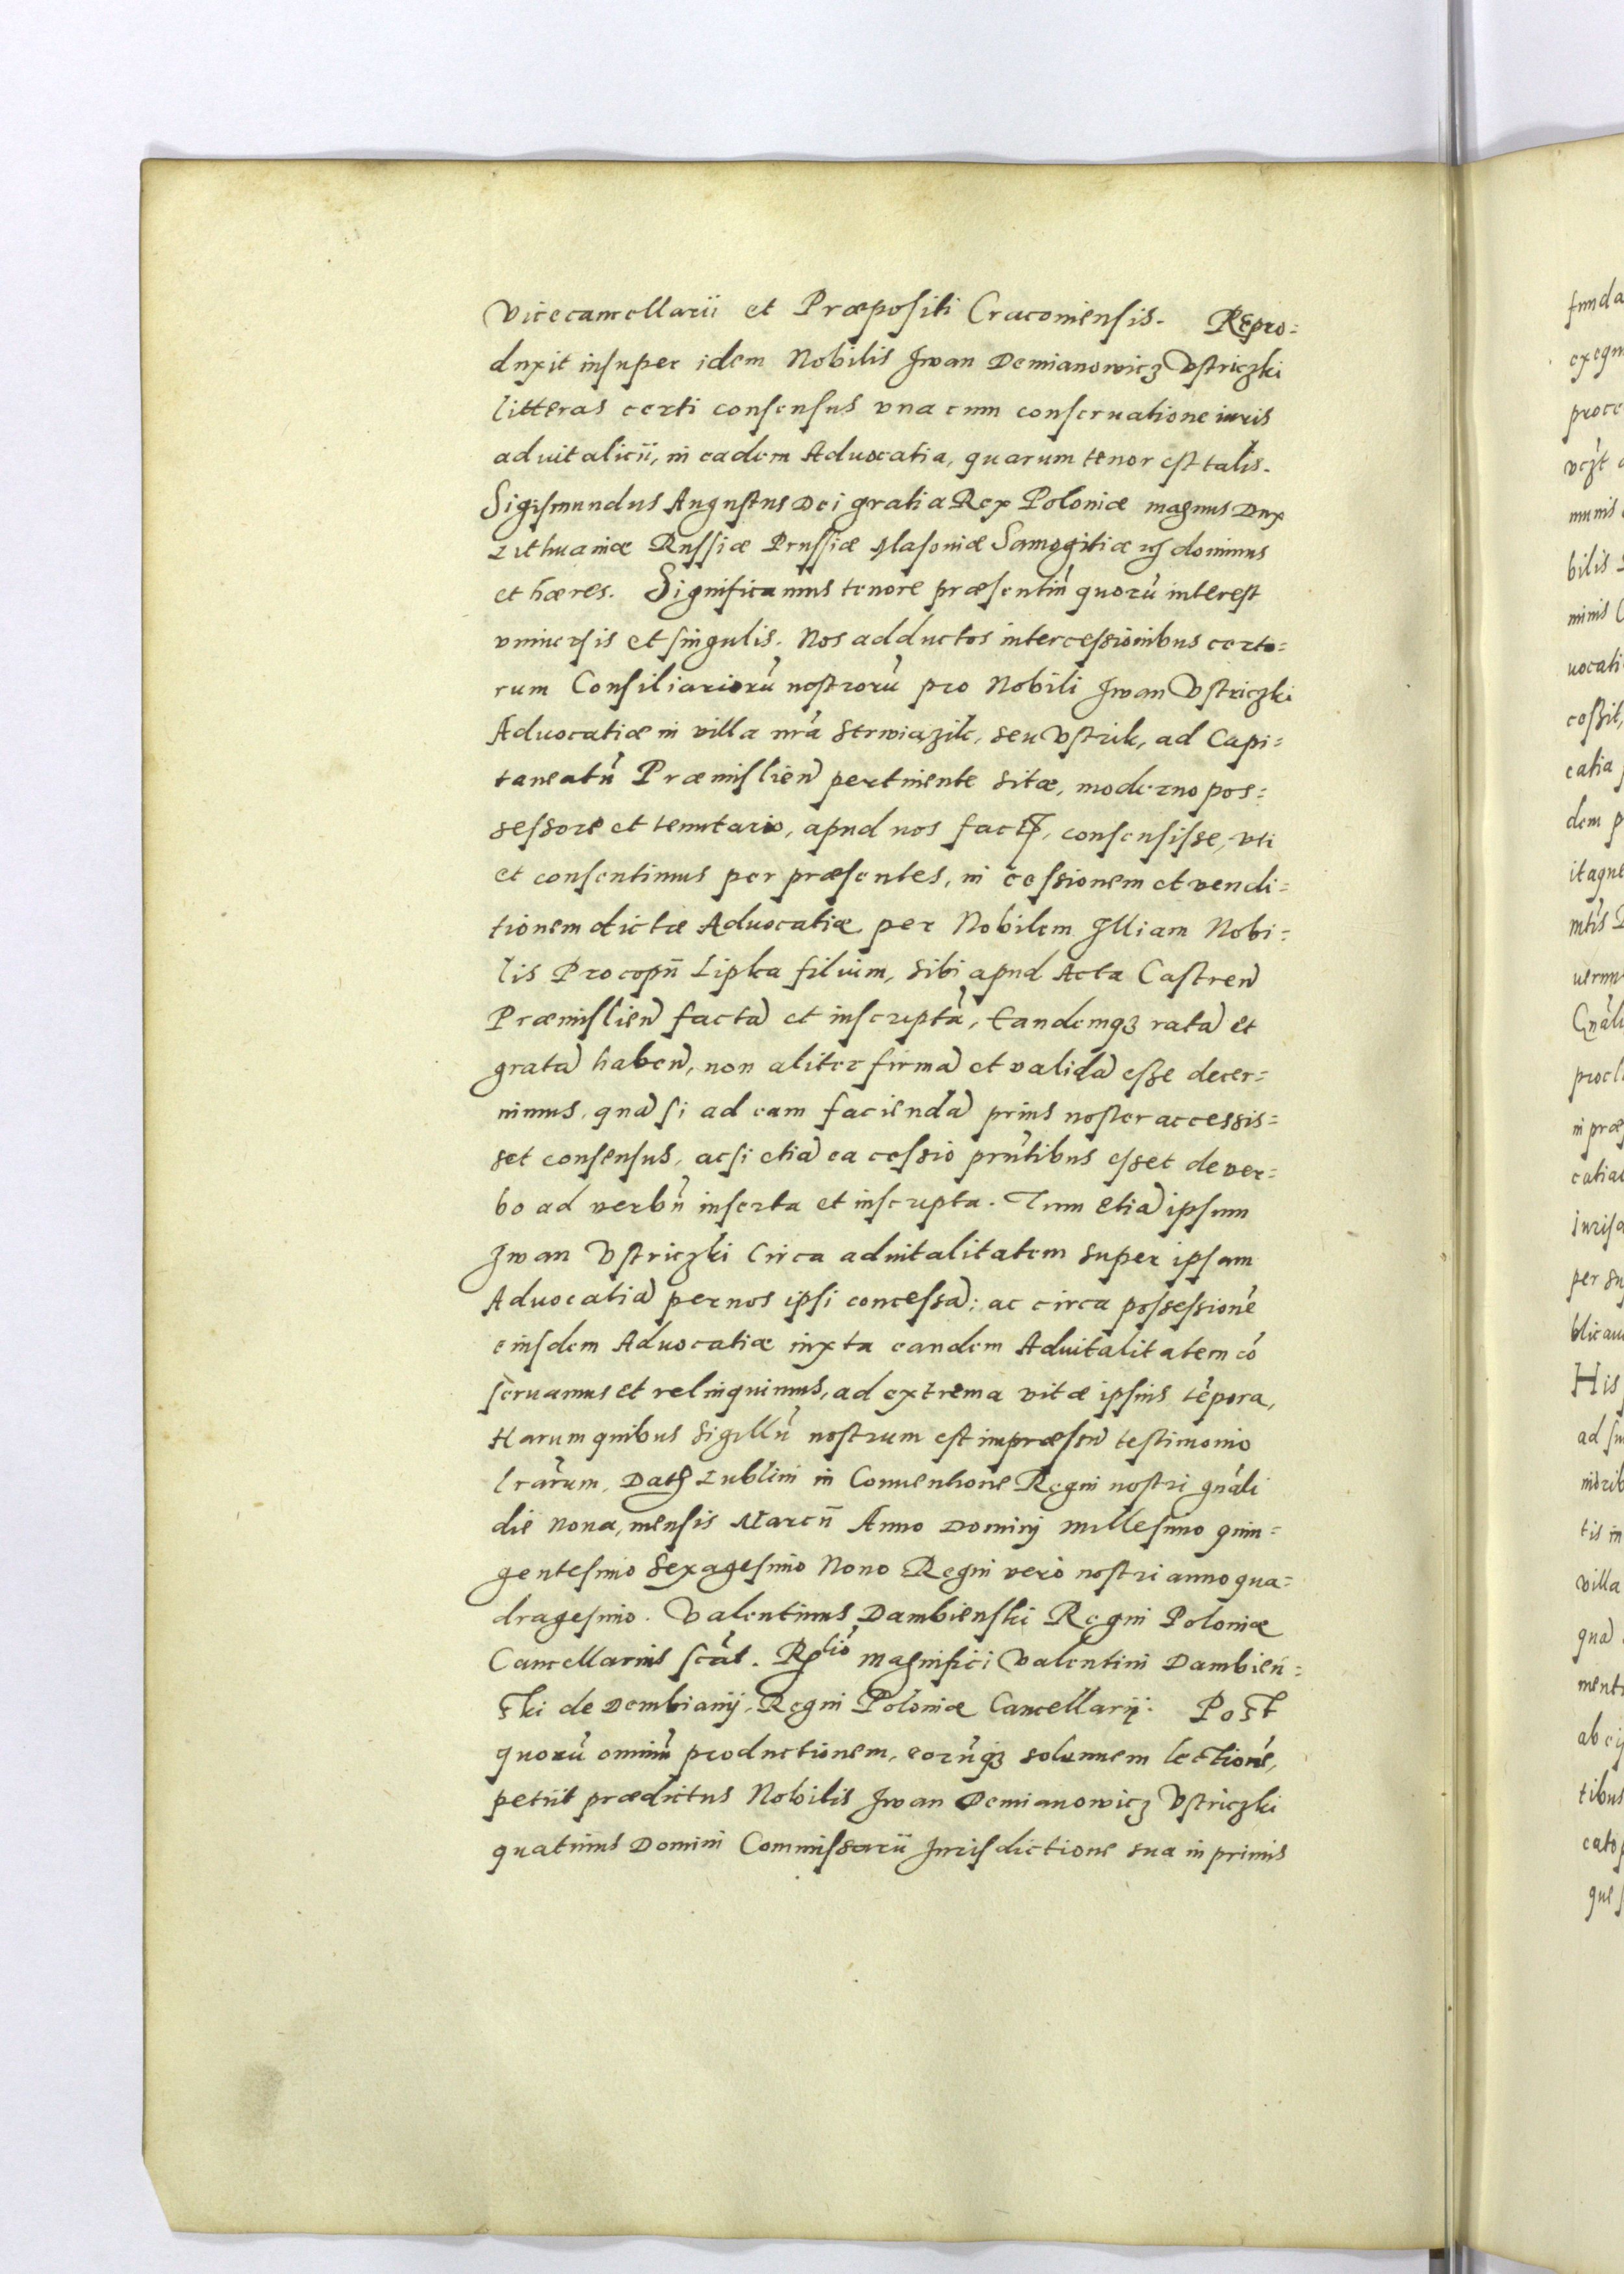 Vicecancellarii et Præpositi Cracouiensis. Repro=
duxit insuper idem Nobilis Iwan Demianowicz Vstriczki
litteras certi consensus vna cum conseruatione iuris
aduitalicii, in eadem Aduocatia, quarum tenor est talis.
Sigismundus Augustus Dei gratia Rex Poloniæ magnus Dux
Lithuaniæ Russiæ Prussiæ Masouiæ Samogitiæ etc dominus
et hæres. Significamus tenore præsentiũ quorũ interest
vniuersis et singulis. Nos adductos intercessionibus certo=
rum Consiliariorũ nostrorũ pro Nobili Iwan Vstriczki
Aduocatiæ in villa nrã Strwiazik, seu Vstrik, ad Capi=
taneatũ Præmislień pertinente sitæ, moderno pos=
sessore et tenutario, apud nos fact, consensisse, vti
et consentimus per præsentes, in cessionem et vendi=
tionem dictæ Aduocatiæ per Nobilem Illiam Nobi=
lis Procopii Lipka filium, sibi apud Acta Castreń
Præmislień factã et inscriptã, Eandemqz ratã et
gratã habeń, non aliter firmã et validã esse decer=
nimus, quã si ad eam faciendã prius noster accessis=
set consensus, acsi etiã ea cessio prñtibus esset de ver=
bo ad verbũ inserta et inscripta. Tum etiã ipsum
Iwan Vstriczki circa aduitalitatem super ipsam
Aduocatiã per nos ipsi concessã; ac circa possessionẽ
eiusdem Aduocatiæ iuxta eandem Aduitalitatem cõ
seruamus et relinquimus, ad extrema vitæ ipsius tẽpora,
Harum quibus Sigillũ nostrum est impræseń testimonio
lrãrum, Dat Lublini in Conuentione Regni nostri gnãli
die nona, mensis Marcii Anno Dominj millesimo quin=
gentesimo Sexagesimo Nono Regni vero nostri anno qua=
dragesimo. Valentinus Dambienski Regni Poloniæ
Cancellarius scãt. Rłtio magnifici Valentini Dambień=
ski de Dembianij, Regni Poloniæ Cancellarij. Post
quorũ omniũ productionem, eorũqz solemnem lectionẽ,
petiit prædictus Nobilis Iwan Demianowicz Vstriczki
quatinus Domini Commissarii Iurisdictione sua in primis